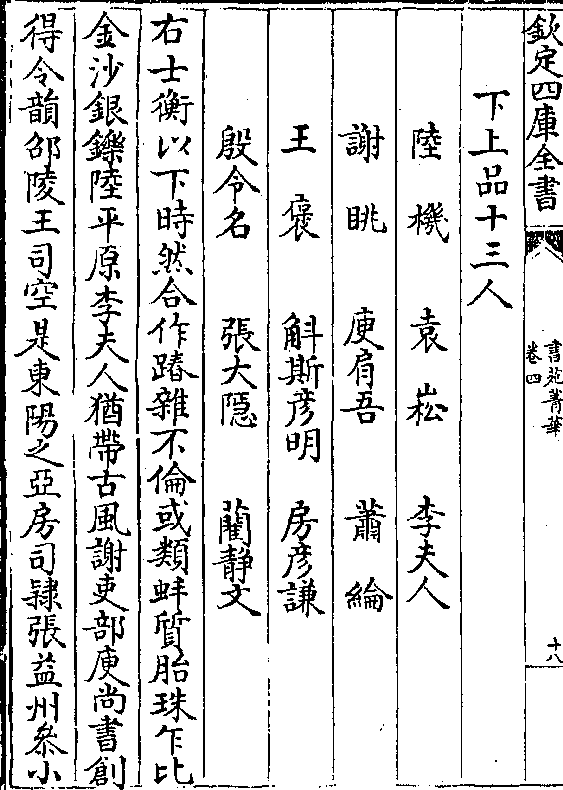 欽定四庫全書
書苑菁華
卷四
十八
下上品十三人
陸機 袁崧 李夫人
謝眺 庾肩吾 蕭綸
王褒 斛斯彦明 房彦謙
殷令名 張大隠 藺静文
右士衡以下時然合作踳雜不倫或類蚌質胎珠乍比
金沙銀鑠陸平原李夫人猶帶古風謝吏部庾尚書創
得令韻邵陵王司空是東陽之亞房司隸張益州叅小